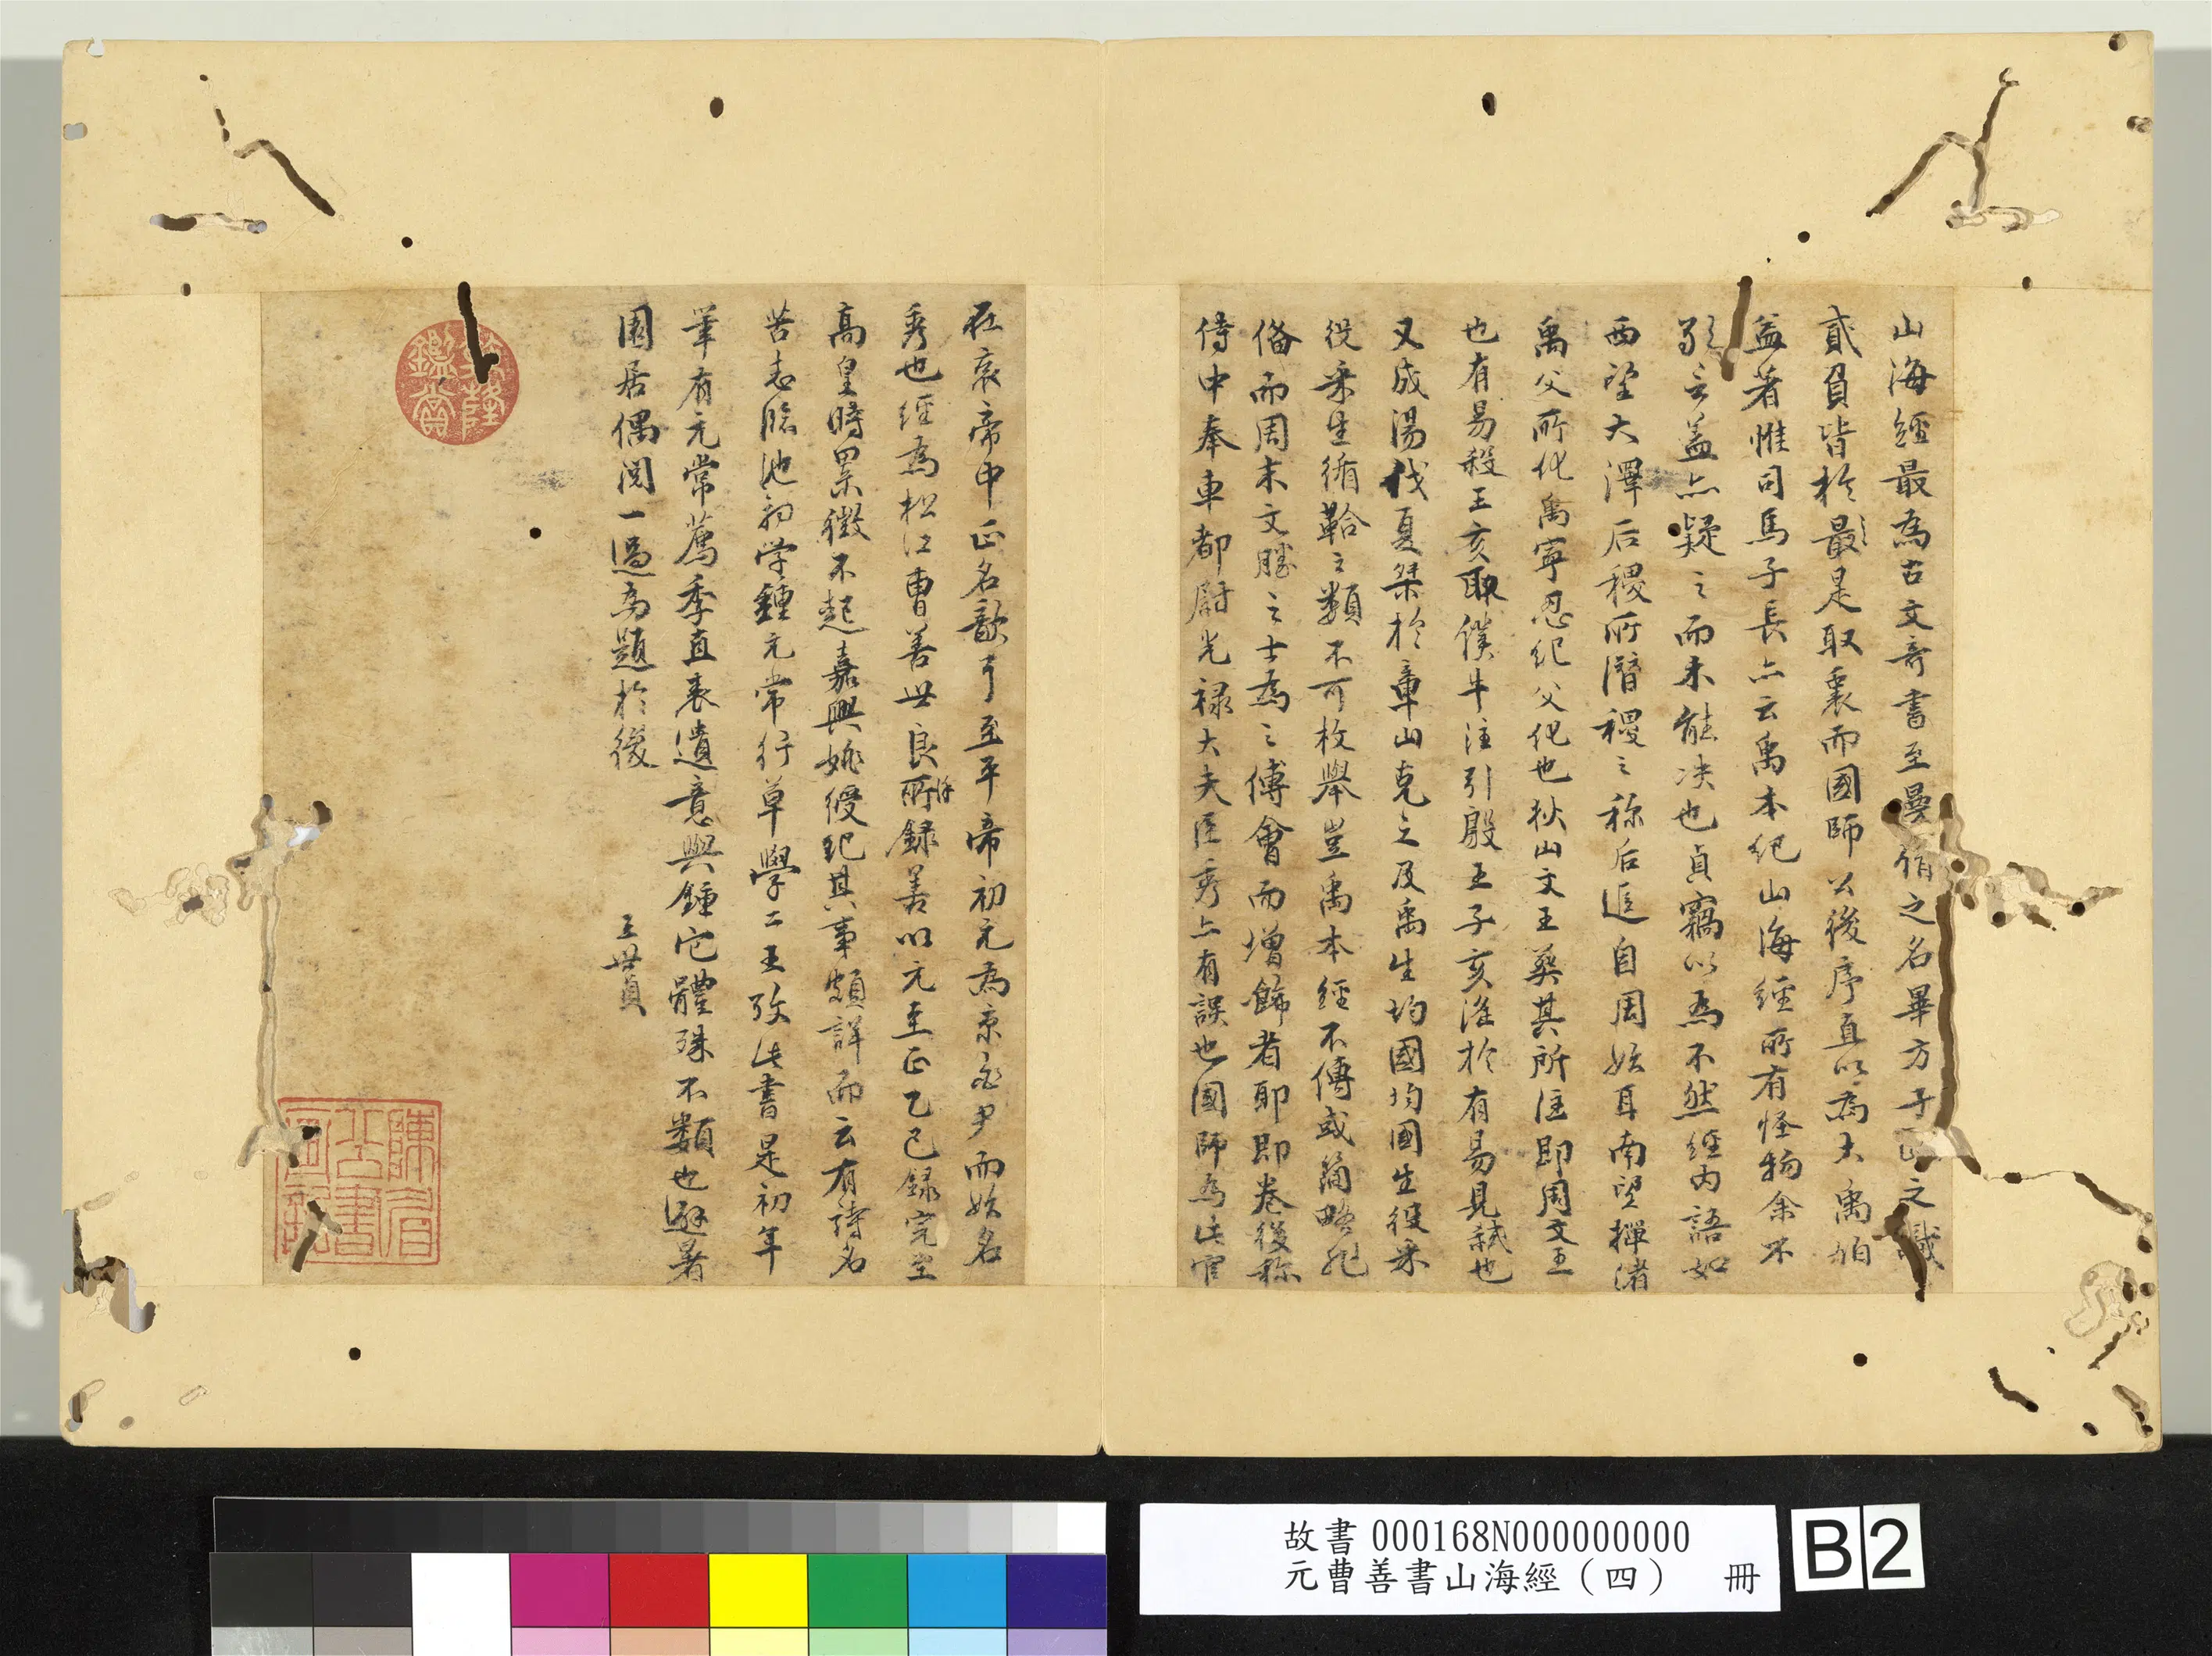 山海經最為古文奇書至曼倩之名畢方子政之識
貳負皆於最是取衷而國師公後序直以為大禹伯
益著惟司馬子長亦云禹本紀山海經所有怪物余不
敢言蓋亦疑之而未能决也貞竊以為不然經內語如
西望大澤后稷所潛稷之称后追自周始耳南望墠渚
禹父所化禹寧忍紀父化也狄山文王葬其所注即周文王
也有易殺王亥取僕牛注引殷王子亥淫於有易見弒也
又成湯伐夏桀於章山克之及禹生均國均國生役采
役采生循鞈之類不可枚舉豈禹本經不傳或簡略非
備而周末文勝之士為之傅會而增飾者耶即卷後称
侍中奉車都尉光祿大夫臣秀亦有誤也國師為此官
在哀帝中正名歆耳至平帝初元為京兆尹而始名
秀也經為松江曹善世良所錄善以元至正乙巳錄完至
高皇時累徵不起嘉興姚綬紀其事頗詳而云有詩名
苦志臨池初学鍾元常行草學二王效此書是初年
筆有元常薦季直表遺意與鍾它體殊不類也避暑
園居偶閱一過為題於後
王世貞
故書 000168N000000000
元曹善書山海經（四） 冊
B2